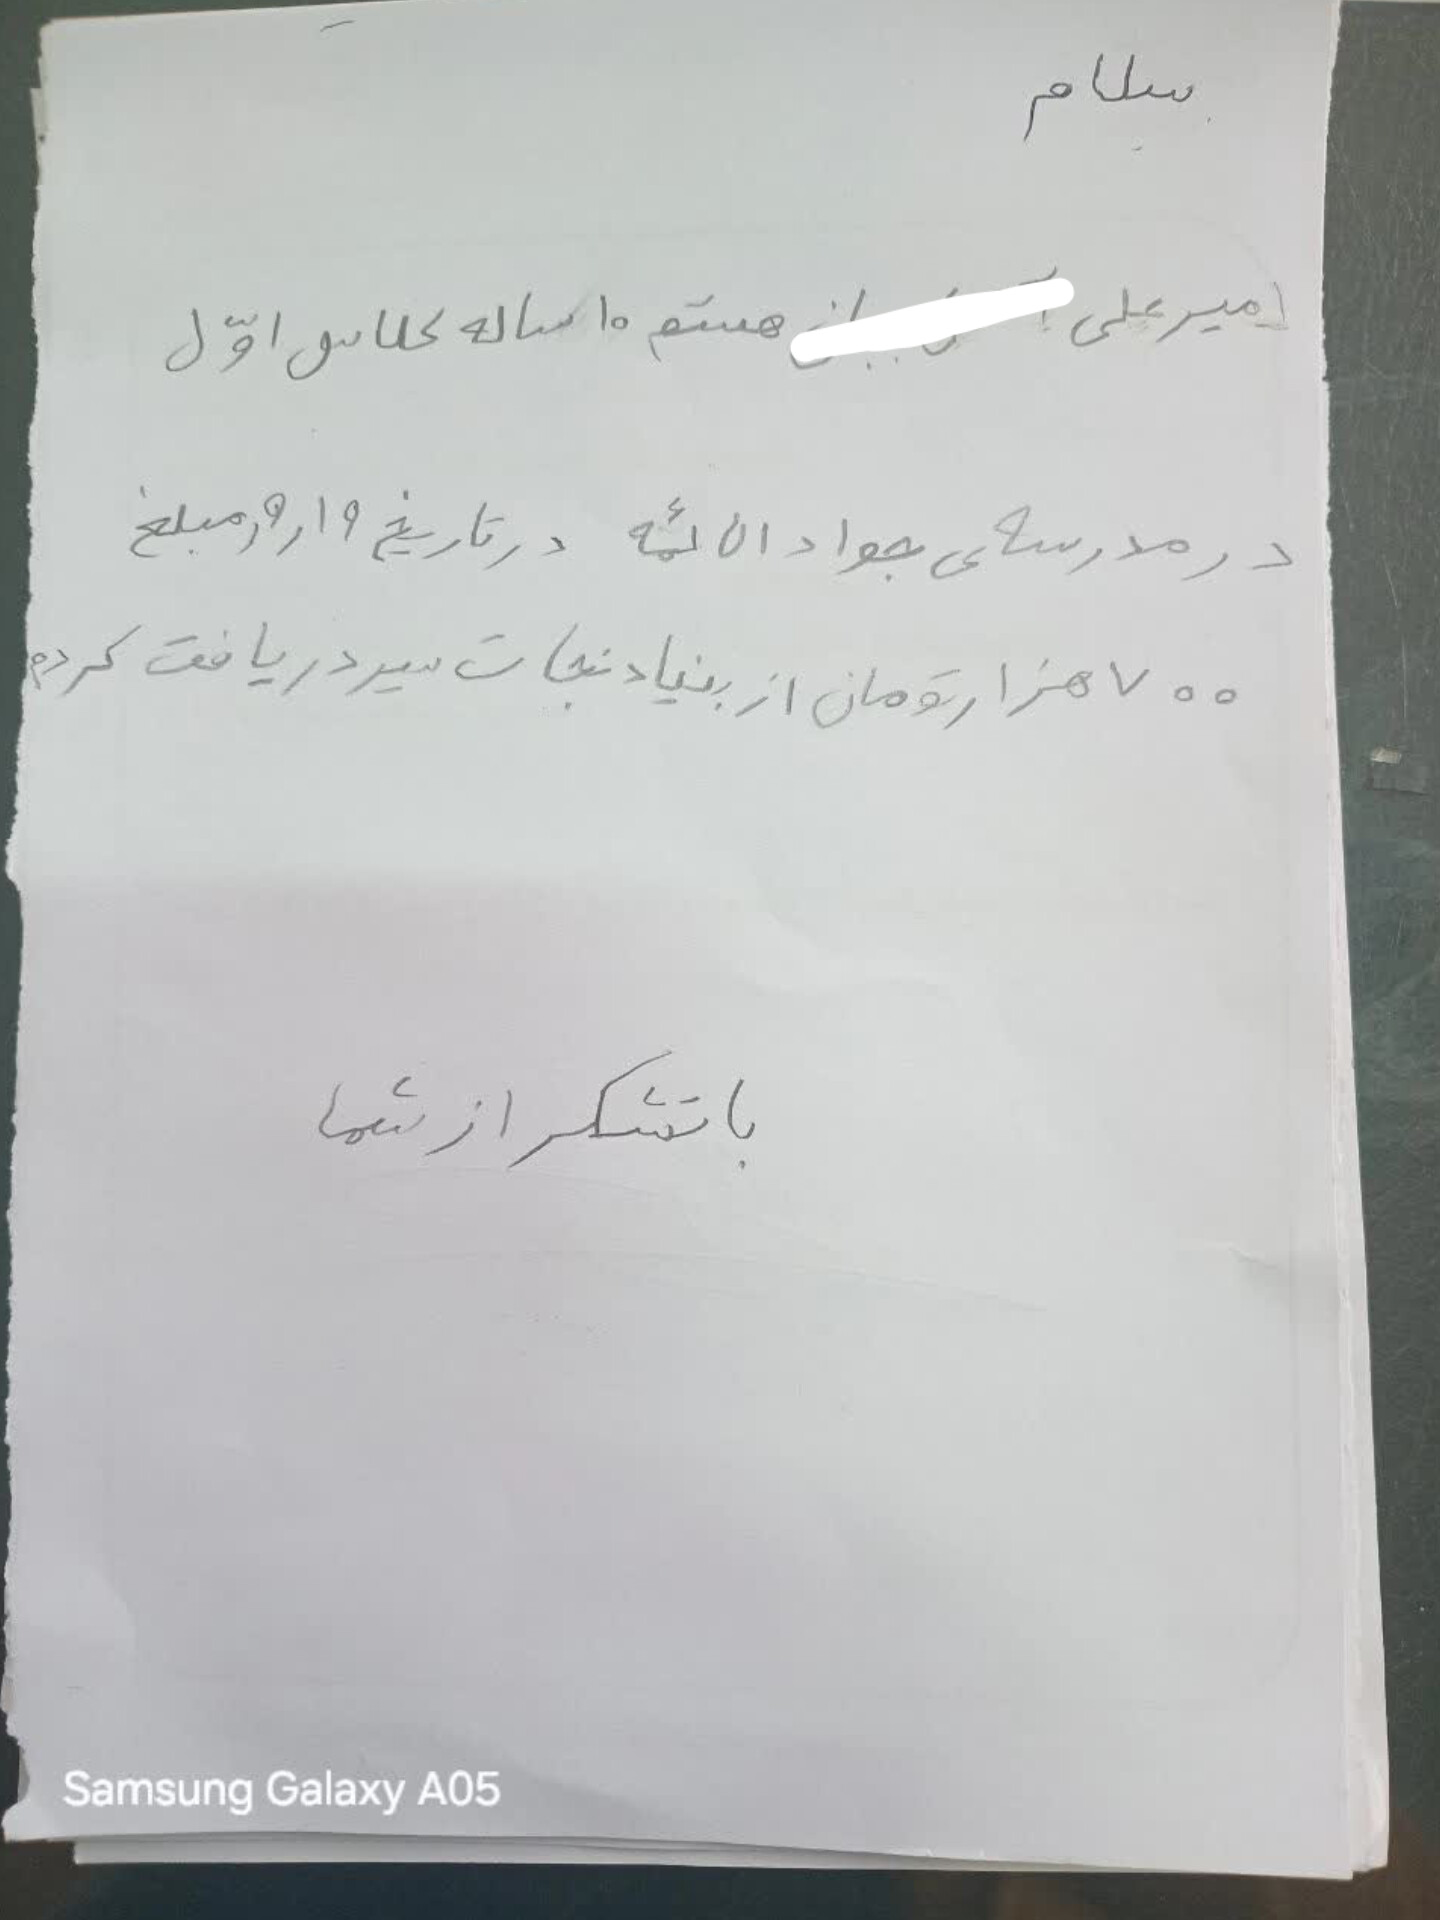 سلام
امیر علی هستم ۱۰ ساله کلاس اوّل
در مدرسه‌ی جواد الائمه در تاریخ ۹/۱۹ مبلغ
۷۰۰ هزار تومان از بنیاد نجات سیر دریافت کردم
با تشکر از شما
Samsung Galaxy A05